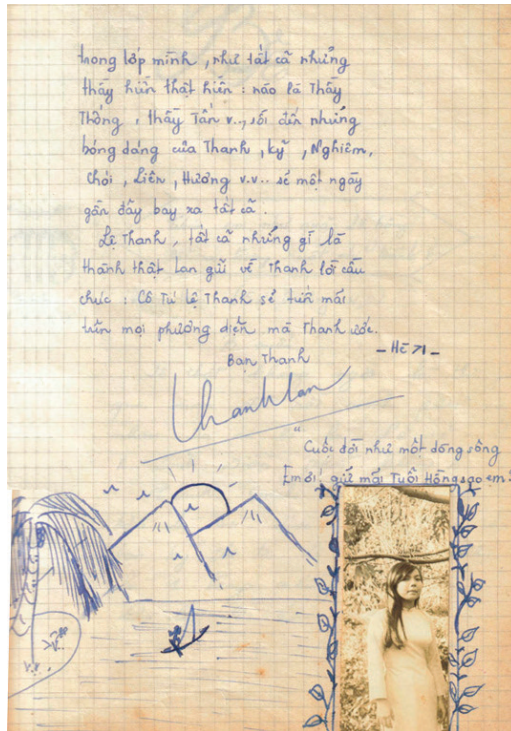 trong lớp mình, như tất cã nhưng
thầy hiền thật hiền : nào là Thầy
Thống, thầy Tấn v.., rồi đến nhưng
bóng dáng của Thanh, Kỹ, Nghiêm,
Chơi, Liên, Hường v.v.. sẽ một ngày
gần đây bay xa tất cã.
Lệ Thanh, tất cã nhưng gì là
thành thật Lan gửi về Thanh lời cầu
chúc : Cô Tú Lệ Thanh sẽ tiến mãi
trên mọi phương diện mà Thanh ước.
Bạn Thanh
- Hè 71 -
Thanhlan
Cuộc đời như một dòng sông
Em ơi, giữ mãi Tuổi Hồng sao em?